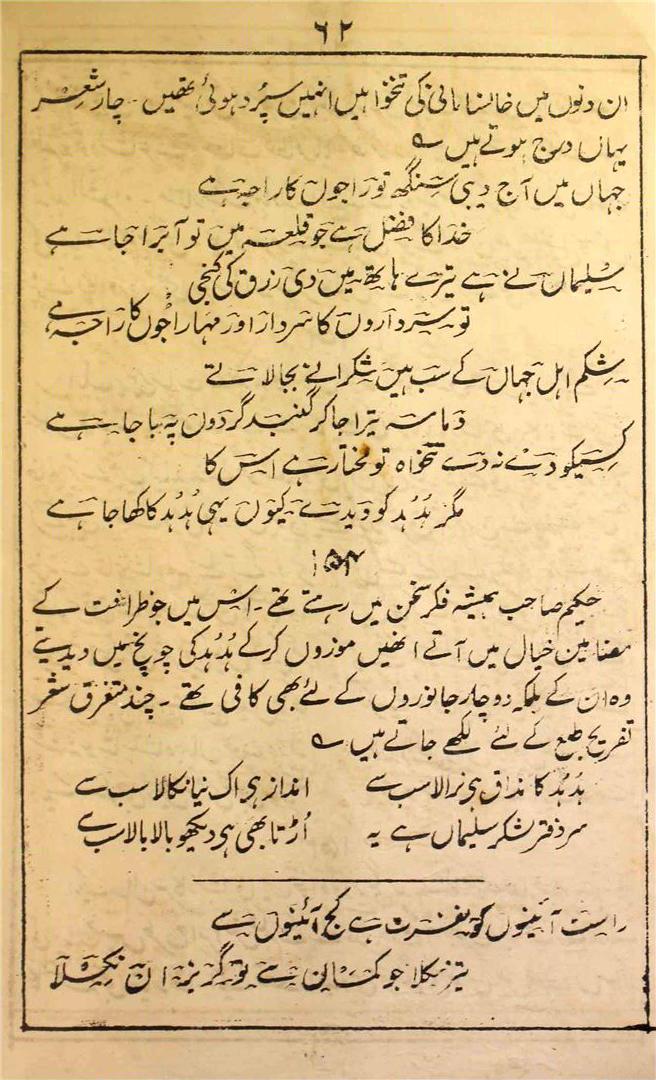 ۶۲
ان دنوں میں خانسامانی کی تنخواہیں انہیں سپرد ہوئی تھیں ۔ چار شعر
یہاں درج ہوتے ہیں ؎
جہاں میں آج دیبی سنگھ تو راجوں کا راجہ ہے
خدا کا فضل ہے جو قلعہ میں تو آ برا جا ہے
سلیماں نے ہے تیرے ہاتھ میں دی رزق کی کنجی
تو سرداروں کا سردار اور مہاراجوں کا راجہ ہے
شکم اہل جہاں کے سب ہیں شکرانے بجا لاتے
دمامہ تیرا جا کر گنبد گردوں پہ باجا ہے
کسیکو دے نہ دے تنخواہ تو مختار ہے اس کا
مگر ہُدہُد کو دیدے کیوں یہی ہُدہُد کا کھاجا ہے
حکیم صاحب ہمیشہ فکر سخن میں رہتے تھے ۔ اس میں جو ظرافت کے
مضامین خیال میں آتے انھیں موزوں کر کے ہُدہُد کی چونچ میں دیدیتے
وہ ان کے بلکہ دو چار جانوروں کے لئے بھی کافی تھے ۔ چند متفرق شعر
تفریح طبع کے لئے لکھے جاتے ہیں ؎
ہُدہُد کا مذاق ہی نرالا سب سے انداز ہی اک نیا نکالا سب سے
سر دفتر لشکر سلیماں ہے یہ اُڑتا بھی ہی دیکھو بالا بالا سب سے
راست آئینوں کو نفرت ہے کج آئینوں سے
تیر نکلا جو کمان سے تو گریزاں نکلا